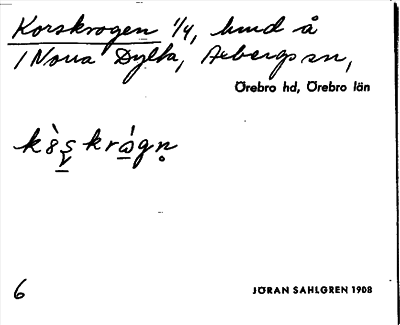 Korskrogen 1/4, hmd å
/ Norra Dylta, Axbergs sn,
Örebro hd, Örebro län
6
JÖRAN SAHLGREN 1908